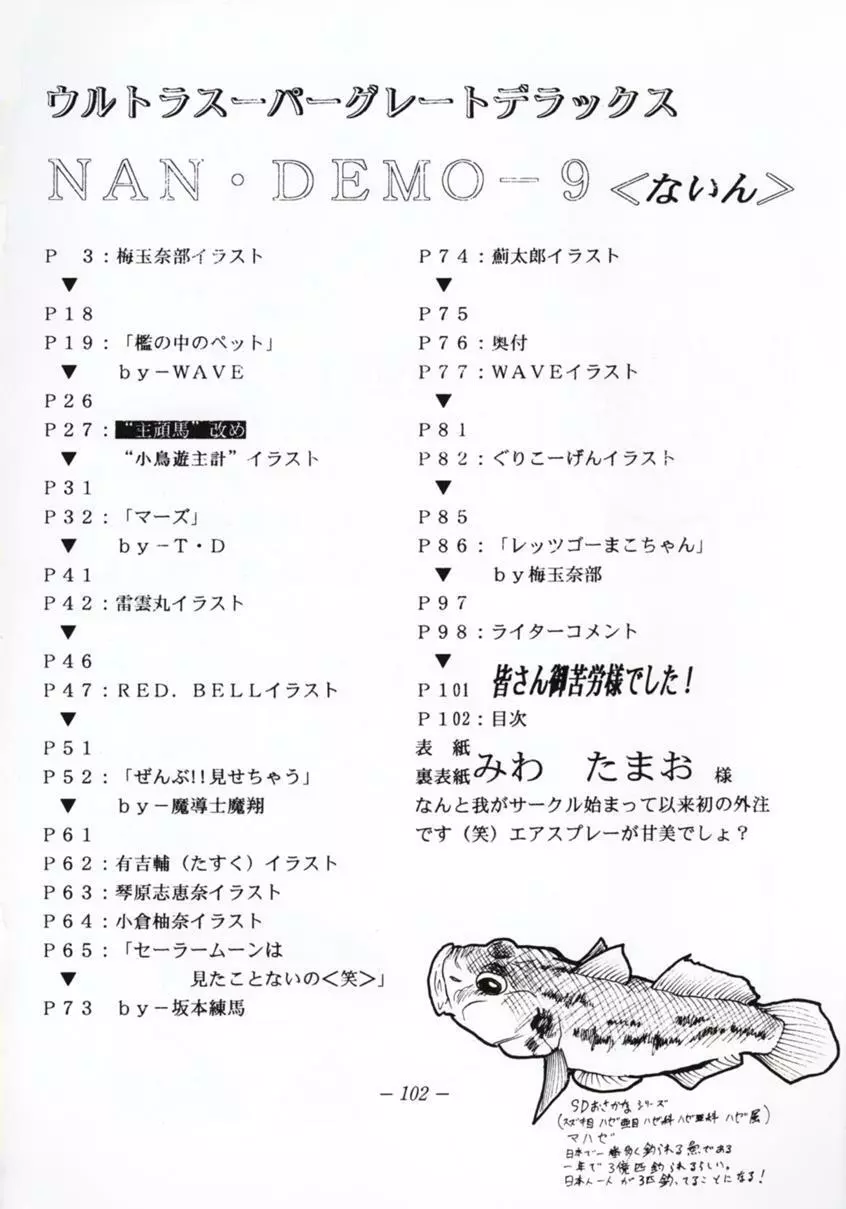 ウルトラスーパーグレートデラックス
NAN・DEMO－9＜ないん＞
P 3：梅玉奈部イラスト
▼
P18
P19：「檻の中のペット」
▼ by－WAVE
P26
P27：“主頑馬”改め
▼ “小鳥遊主計”イラスト
P31
P32：「マーズ」
▼ by－T・D
P41
P42：雷雲丸イラスト
▼
P46
P47：RED．BELLイラスト
▼
P51
P52：「ぜんぶ!!見せちゃう」
▼ by－魔導士魔翔
P61
P62：有吉輔（たすく）イラスト
P63：琴原志恵奈イラスト
P64：小倉柚奈イラスト
P65：「セーラームーンは
▼ 見たことないの＜笑＞」
P73 by－坂本練馬
P74：薊太郎イラスト
▼
P75
P76：奥付
P77：WAVEイラスト
▼
P81
P82：ぐりこーげんイラスト
▼
P85
P86：「レッツゴーまこちゃん」
▼ by梅玉奈部
P97
P98：ライターコメント
▼
P101 皆さん御苦労様でした！
P102：目次
表 紙
裏表紙 みわ たまお 様
なんと我がサークル始まって以来初の外注
です（笑）エアスプレーが甘美でしょ？
SDおさかなシリーズ
(スズキ目 ハゼ亜目 ハゼ科 ハゼ亜科 ハゼ属)
マハゼ
日本で一番多く釣られる魚である
一年で3億匹釣られるらしい。
日本人一人が3匹釣ってることになる！
－102－